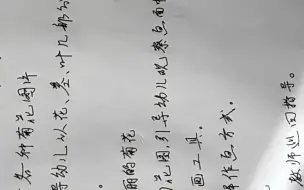 各种菊花图片
导幼儿从花、茎、叶几部分
丽的菊花
范图,引导幼儿观察画面
画工具。
作点方式。
教师巡回指导。